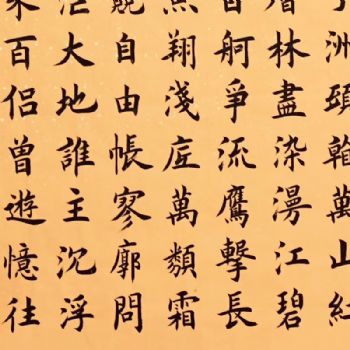 子洲頭看萬山紅
層林盡染漫江碧
百舸爭流鷹擊長
魚翔淺底萬類霜
競自由悵寥廓問
茫大地誰主沉浮
來百侶曾遊憶往